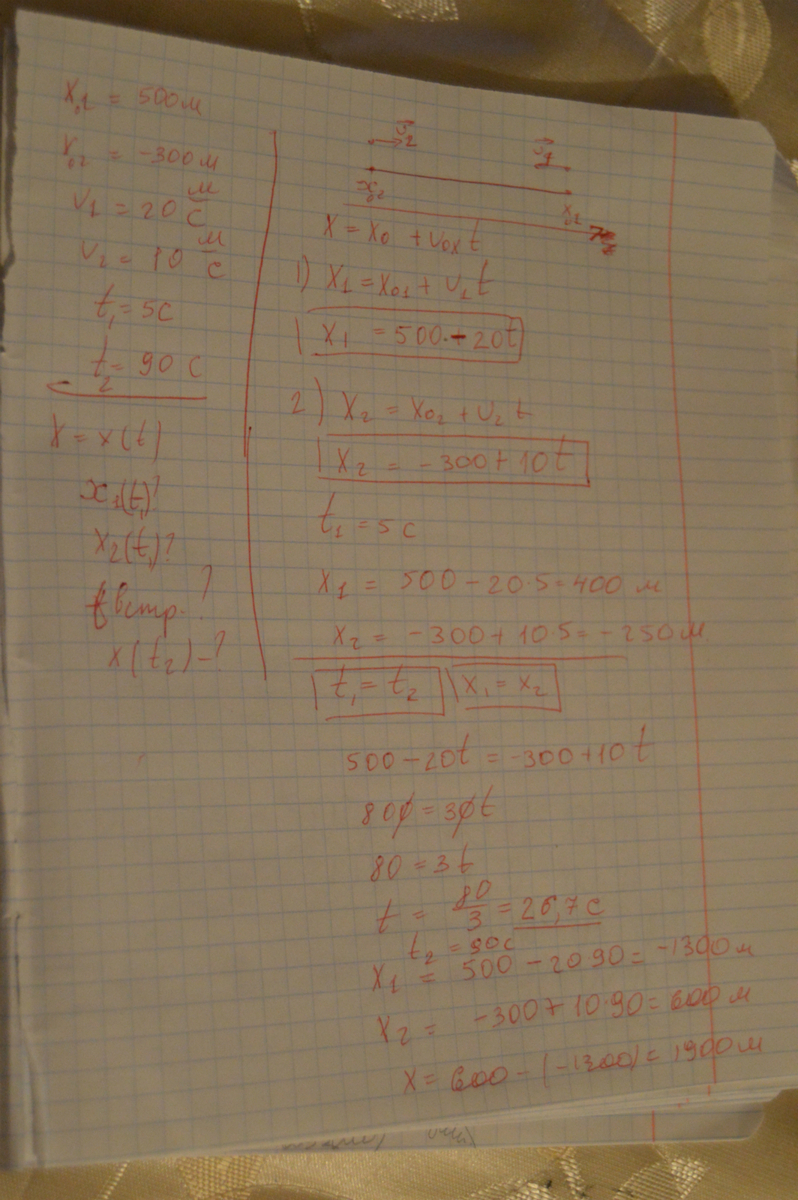 x₀₁ = 500м
x₀₂ = -300м
v₁ = 20 м/с
v₂ = 10 м/с
t₁ = 5с
t₂ = 90 с
x = x(t)
x₁(t₁)?
x₂(t₁)?
t встр. ?
x(t₂) - ?
x₀₂
x = x₀ + v₀ₓt
1) x₁ = x₀₁ + v₁t
x₁ = 500 - 20t
2) x₂ = x₀₂ + v₂t
x₂ = -300 + 10t
t₁ = 5 с
x₁ = 500 - 20·5 = 400 м
x₂ = -300 + 10·5 = -250м
t₁ = t₂ x₁ = x₂
500 - 20t = -300 + 10t
800 = 30t
80 = 3t
t = 80/3 = 26,7 с
t₂ = 90с
x₁ = 500 - 20·90 = -1300м
x₂ = -300 + 10·90 = 600 м
x = 600 - (-1300) = 1900м